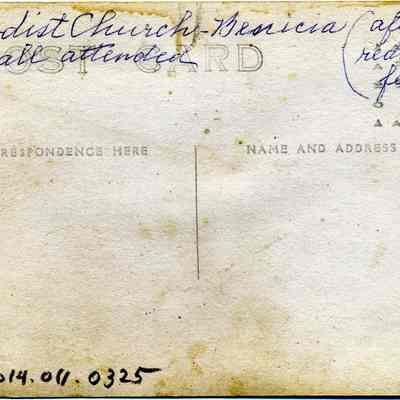 dist Church - Benicia (af
all attended re
POST CARD fe
RESPONDENCE HERE
NAME AND ADDRESS
014.011.0325